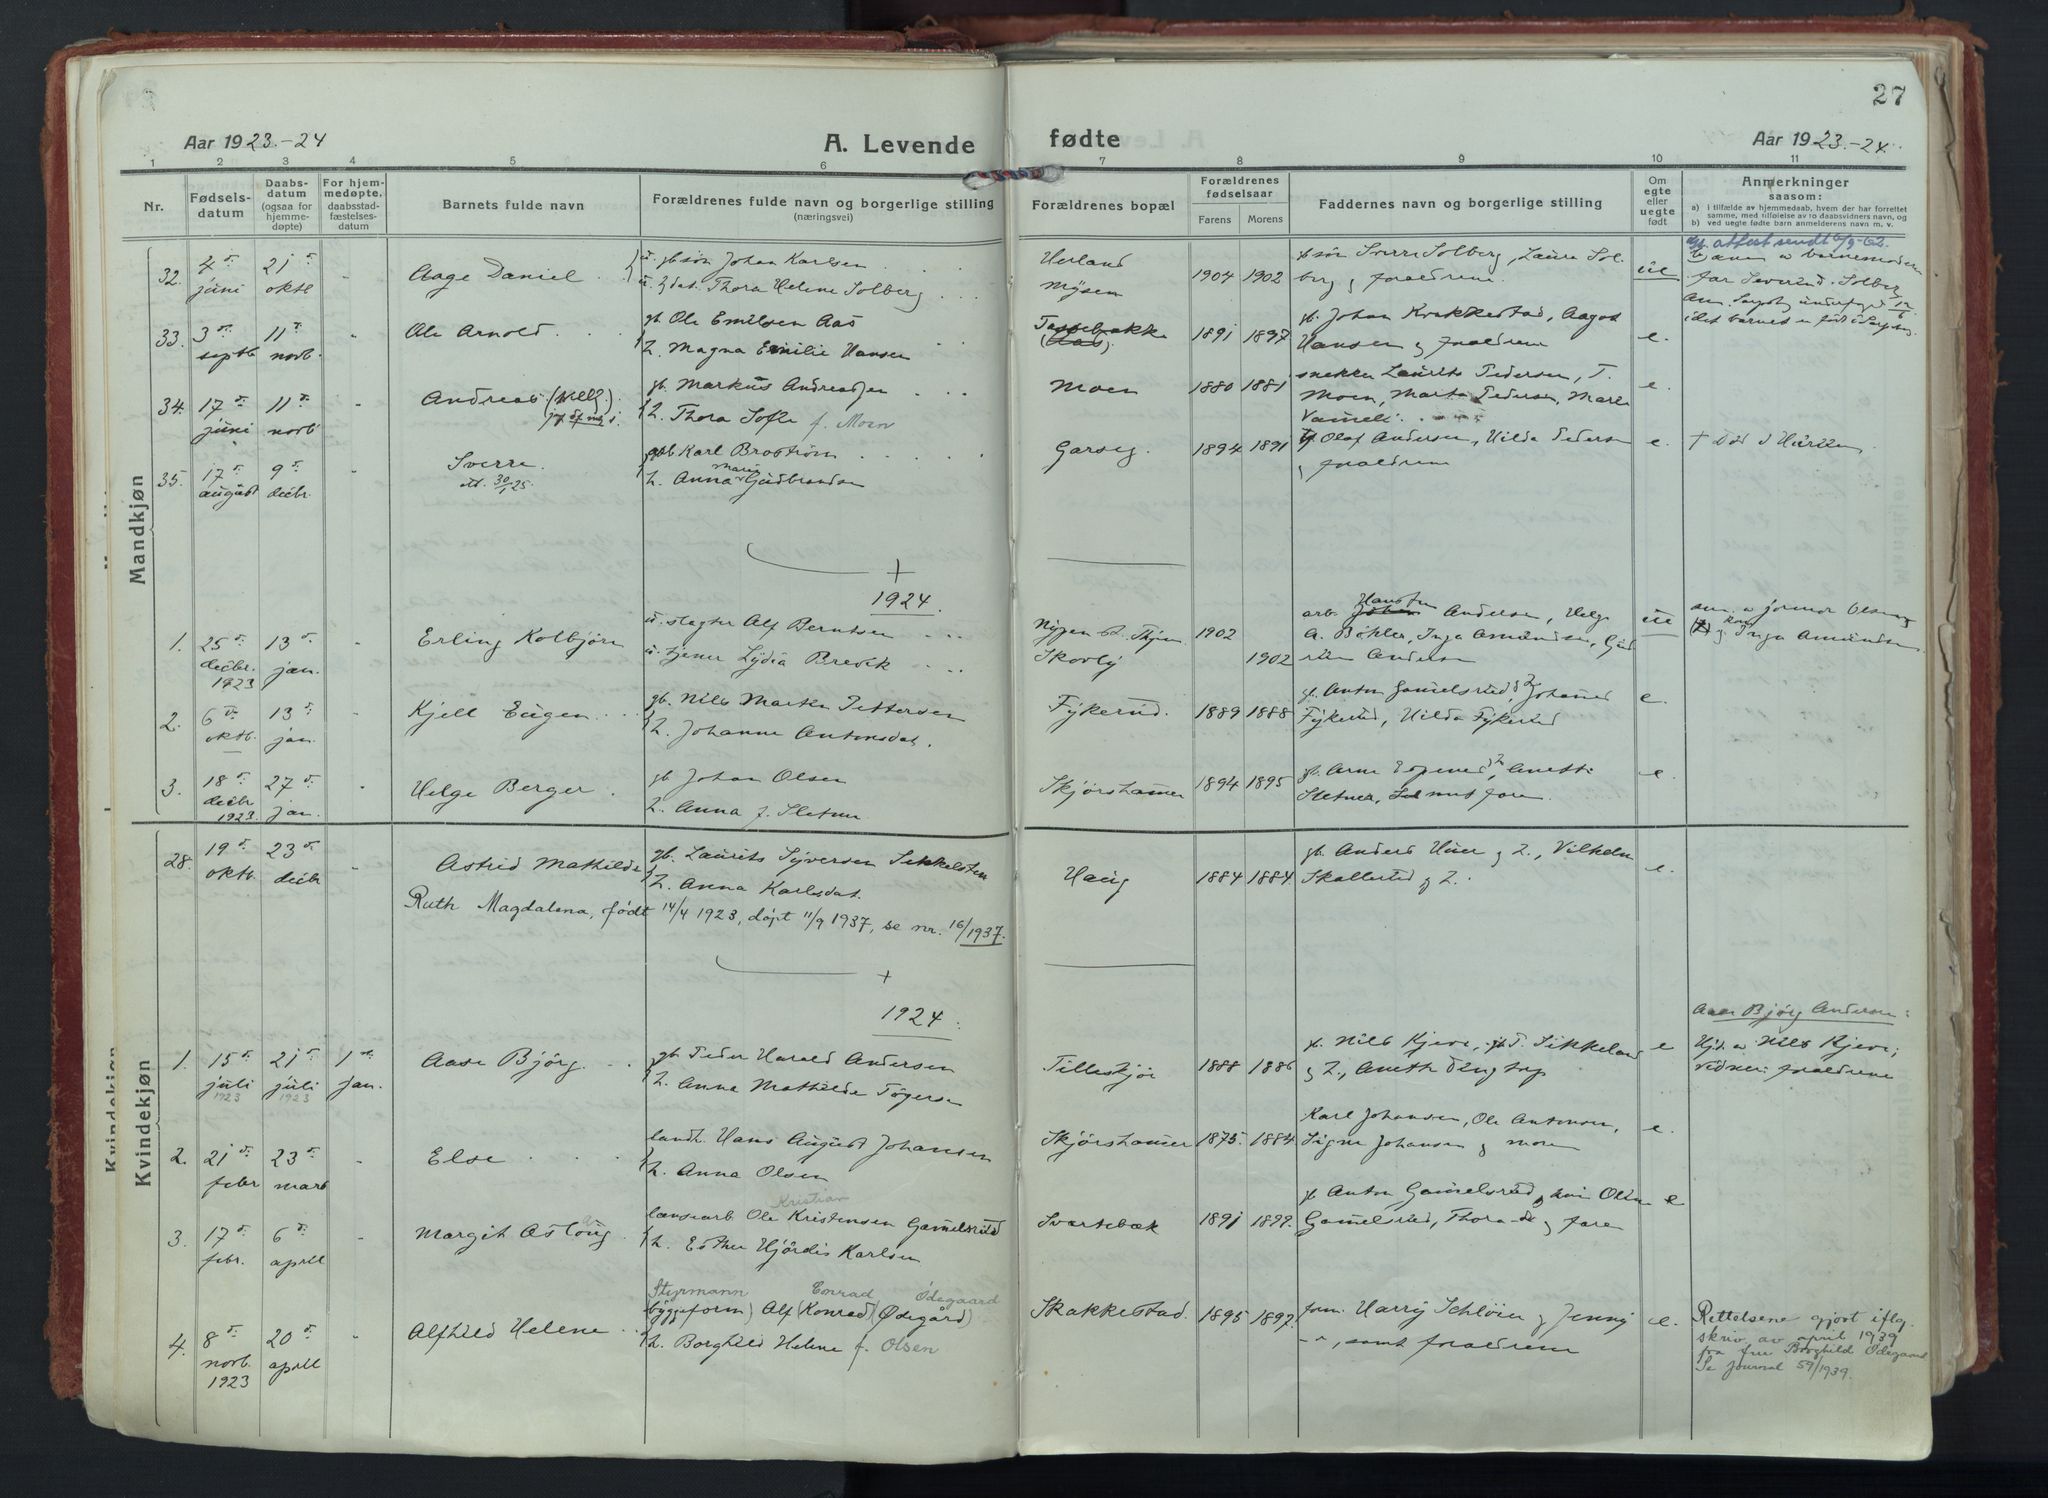 27
Aar 1923.-24
A. Levende fødte
Aar 1923.-24.
1 2 3 4 5 6 7 8 9 10 11
Nr.
Fødsels-
datum
Daabs-
datum
(ogsaa for
hjemme-
døpte)
For hjem-
medøpte,
daabsstad-
fæstelses-
datum
Barnets fulde navn
Forældrenes fulde navn og borgerlige stilling
(næringsvei)
Forældrenes bopæl
Forældrenes
fødselsaar
Farens Morens
Faddernes navn og borgerlige stilling
Om
egte
eller
uegte
født
Anmerkninger
saasom:
a) i tilfælde av hjemmedaab, hvem der har forrettet
samme, med tilføielse av to daabsvidners navn, og
b) ved uegte fødte barn anmelderens navn m. v.
Mandkjøn
32. 4 juni 21 oktb Aage Daniel
u. gbsøn Johan Karlsen
u. gdat. Thora Helene Solberg
Herland
Mysen
1904 1902
gbsøn Sverre Solberg, Laura Sol-
berg og forældrene.
ue
attest sendt 6/9-62.
33. 3 septb 11 novb Ole Arnold
gb. Ole Emilsen Aas
h. Magna Emilie Hansen
(Aas)
1891 1897
gb. Johan Krakkestad, Aagot
Hansen og forældrene
e.
34. 17 juni 11 novb Andreas
gb. Markus Andreassen
h. Thora Sofie f. Moen
Moen
1880 1881
snekker Laurits Pedersen, T.
Moen, Marta Pedersen, Marie
e
35. 17 august 9 decbr. Sverre.
30/1 25.
gb Karl Broström
h. Anna Marie Gudbrandsen
Garseg.
1894 1891
Olaf Andersen, Hilda Peders
og forældrene
e.
1924.
1. 25 decbr. 1923 13 jan. Erling Kolbjørn
u. slagter Alf Berntsen
u. tjener Lydia Brevik
Skovly
1902
1902
arb. Andersen, Helge
A. Böhler, Inga Amundsen,
Andersen
ue
Inga Amundsen
2. 6 oktb. 13 jan. Kjell Eugen
gb. Nils Martin Pettersen
h. Johanne Antonsdat.
Fykerud.
1889 1888
gb. Anton Gamelsrud, Johannes
Fykerud, Hilda Fykerud
e.
3. 18 decbr 1923. 27 jan. Helge Berger
gb Johan Olsen
h. Anna f. Sletner
Skjørshamer
1894 1895
gb. Arne Espenes, Anette
Sletner, samt fare.
e.
Kvindekjøn
28. 19 oktb. 23 decbr Astrid Mathilde
gb. Laurits Syversen Sikkelsten
h. Anna Karlsdat.
Haug
1884 1884.
gb. Anders Huer og h., Vilhelm
Skallerud og h.
e.
Ruth Magdalena, født 14/4 1923, døpt 11/9 1937, se nr. 16/1937.
1924.
1. 15 juli 1923 21 juli 1923 1 jan. Aase Bjørg
gb. Peder Harald Andersen
h. Anna Mathilde Tøgersen
Tilleskjør
1888 1886
gb. Nils Kjeve, P. Sikkeland
og h., Anette
e
Aase Bjørg Andersen:
Hjd. av Nils Kjeve;
vidner: forældrene
2. 21 febr 23 mars Else
landh. Hans August Johansen
h. Anna Olsen
Skjørshamer
1875. 1884
Karl Johansen, Ole Antonsen,
Signe Johansen og moren
e.
3. 17 febr. 6 april Margit Aslaug
Kristian
lænsearb Ole Kristensen Gamelsrud
h. Esther Hjørdis Karlsen
Svartebæk
1891 1899.
gb Anton Gamelsrud, Olsen
Gamelsrud, Thora do og faren
e
4. 8 novb. 1923 20 april Alfhild Helene
Styrmann Conrad Ødegaard
(byggeform) Alf (Konrad) (Ødegård)
h. Borghild Helene f. Olsen
Skakkestad.
1895 1897
form. Harry Schlöier og Jenny
-"-, samt forældrene
e.
Rettelsene gjort iflg.
skriv. av april 1939
fra fru Borghild Ødegaard
Se journal 59/1939.